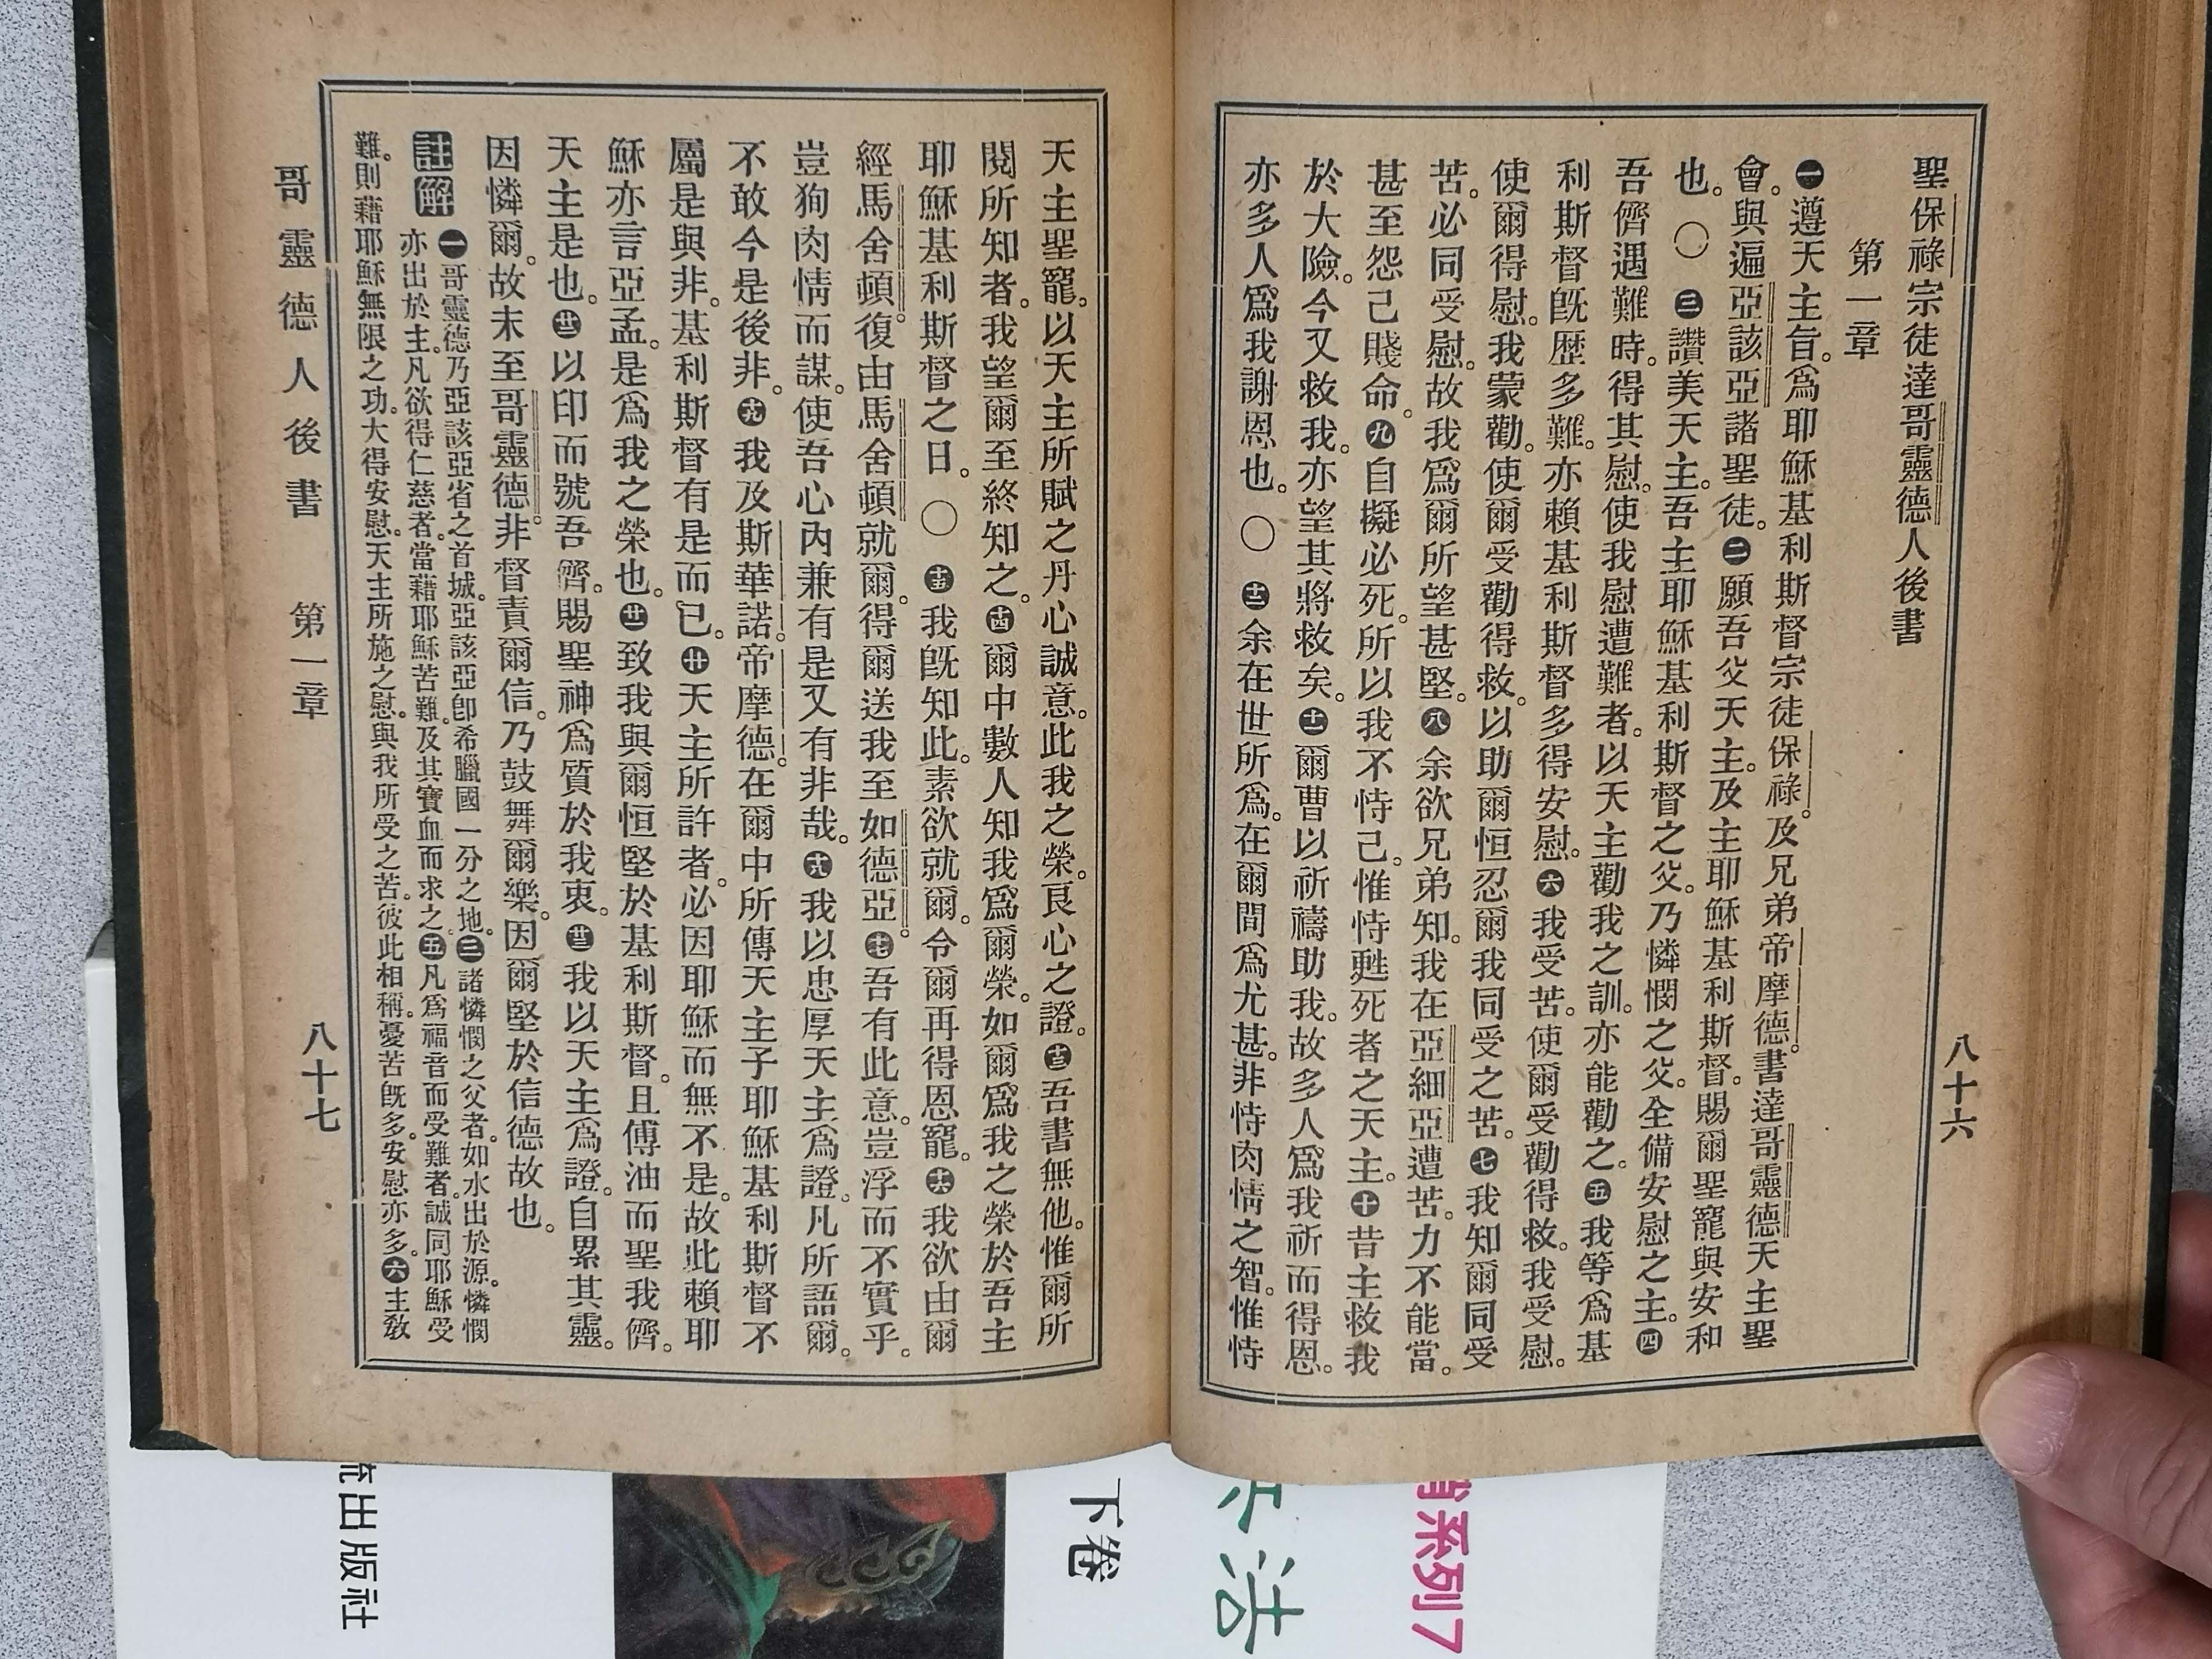 聖保祿宗徒達哥靈德人後書
八十六
第一章
㊀遵天主旨。爲耶穌基利斯督宗徒保祿。及兄弟帝摩德。書達哥靈德天主聖
會。與遍亞該亞諸聖徒。㊁願吾父天主。及主耶穌基利斯督。賜爾聖寵與安和
也。〇㊂讚美天主。吾主耶穌基利斯督之父。乃憐憫之父。全備安慰之主。㊃
吾儕遇難時。得其慰。使我慰遭難者。以天主勸我之訓。亦能勸之。㊄我等爲基
利斯督旣歷多難。亦賴基利斯督多得安慰。㊅我受苦。使爾受勸得救。我受慰。
使爾得慰。我蒙勸。使爾受勸得救。以助爾恒忍爾我同受之苦。㊆我知爾同受
苦。必同受慰。故我爲爾所望甚堅。㊇余欲兄弟知。我在亞細亞遭苦。力不能當。
甚至怨己賤命。㊈自擬必死。所以我不恃己。惟恃甦死者之天主。㊉昔主救我
於大險。今又救我。亦望其將救矣。⓫爾曹以祈禱助我。故多人爲我祈而得恩。
亦多人爲我謝恩也。〇⓬余在世所爲。在爾間爲尤甚。非恃肉情之智。惟恃
天主聖寵。以天主所賦之丹心誠意。此我之榮。良心之證。⓭吾書無他。惟爾所
閱所知者。我望爾至終知之。⓮爾中數人知我爲爾榮。如爾爲我之榮於吾主
耶穌基利斯督之日。〇⓯我旣知此。素欲就爾。令爾再得恩寵。⓰我欲由爾
經馬舍頓。復由馬舍頓就爾。得爾送我至如德亞。⓱吾有此意。豈浮而不實乎。
豈狥肉情而謀。使吾心內兼有是又有非哉。⓲我以忠厚天主爲證。凡所語爾。
不敢今是後非。⓳我及斯華諾。帝摩德。在爾中所傳天主子耶穌基利斯督不
屬是與非。基利斯督有是而已。⓴天主所許者。必因耶穌而無不是。故此賴耶
穌亦言亞孟。是爲我之榮也。㉑致我與爾恒堅於基利斯督。且傅油而聖我儕。
天主是也。㉒以印而號吾儕。賜聖神爲質於我衷。㉓我以天主爲證。自累其靈。
因憐爾。故末至哥靈德。非督責爾信。乃鼓舞爾樂。因爾堅於信德故也。
註解㊀哥靈德乃亞該亞省之首城。亞該亞卽希臘國一分之地。㊂諸憐憫之父者。如水出於源。憐憫
亦出於主。凡欲得仁慈者。當藉耶穌苦難。及其寶血而求之。㊄凡爲福音而受難者。誠同耶穌受
難。則藉耶穌無限之功。大得安慰。天主所施之慰。與我所受之苦。彼此相稱。憂苦旣多。安慰亦多。㊅主敎
哥靈德人後書 第一章 八十七
流出版社
下卷
法
系列7